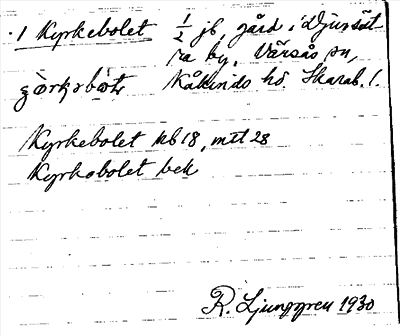 1 Kyrkebolet 1/2 jb, gård i Djursät
ra by, Värsås sn,
Kåkinds hd. Skarab. l.
Kyrkebolet kb 18, mtl 28
Kyrkobolet bek
R. Ljunggren 1930